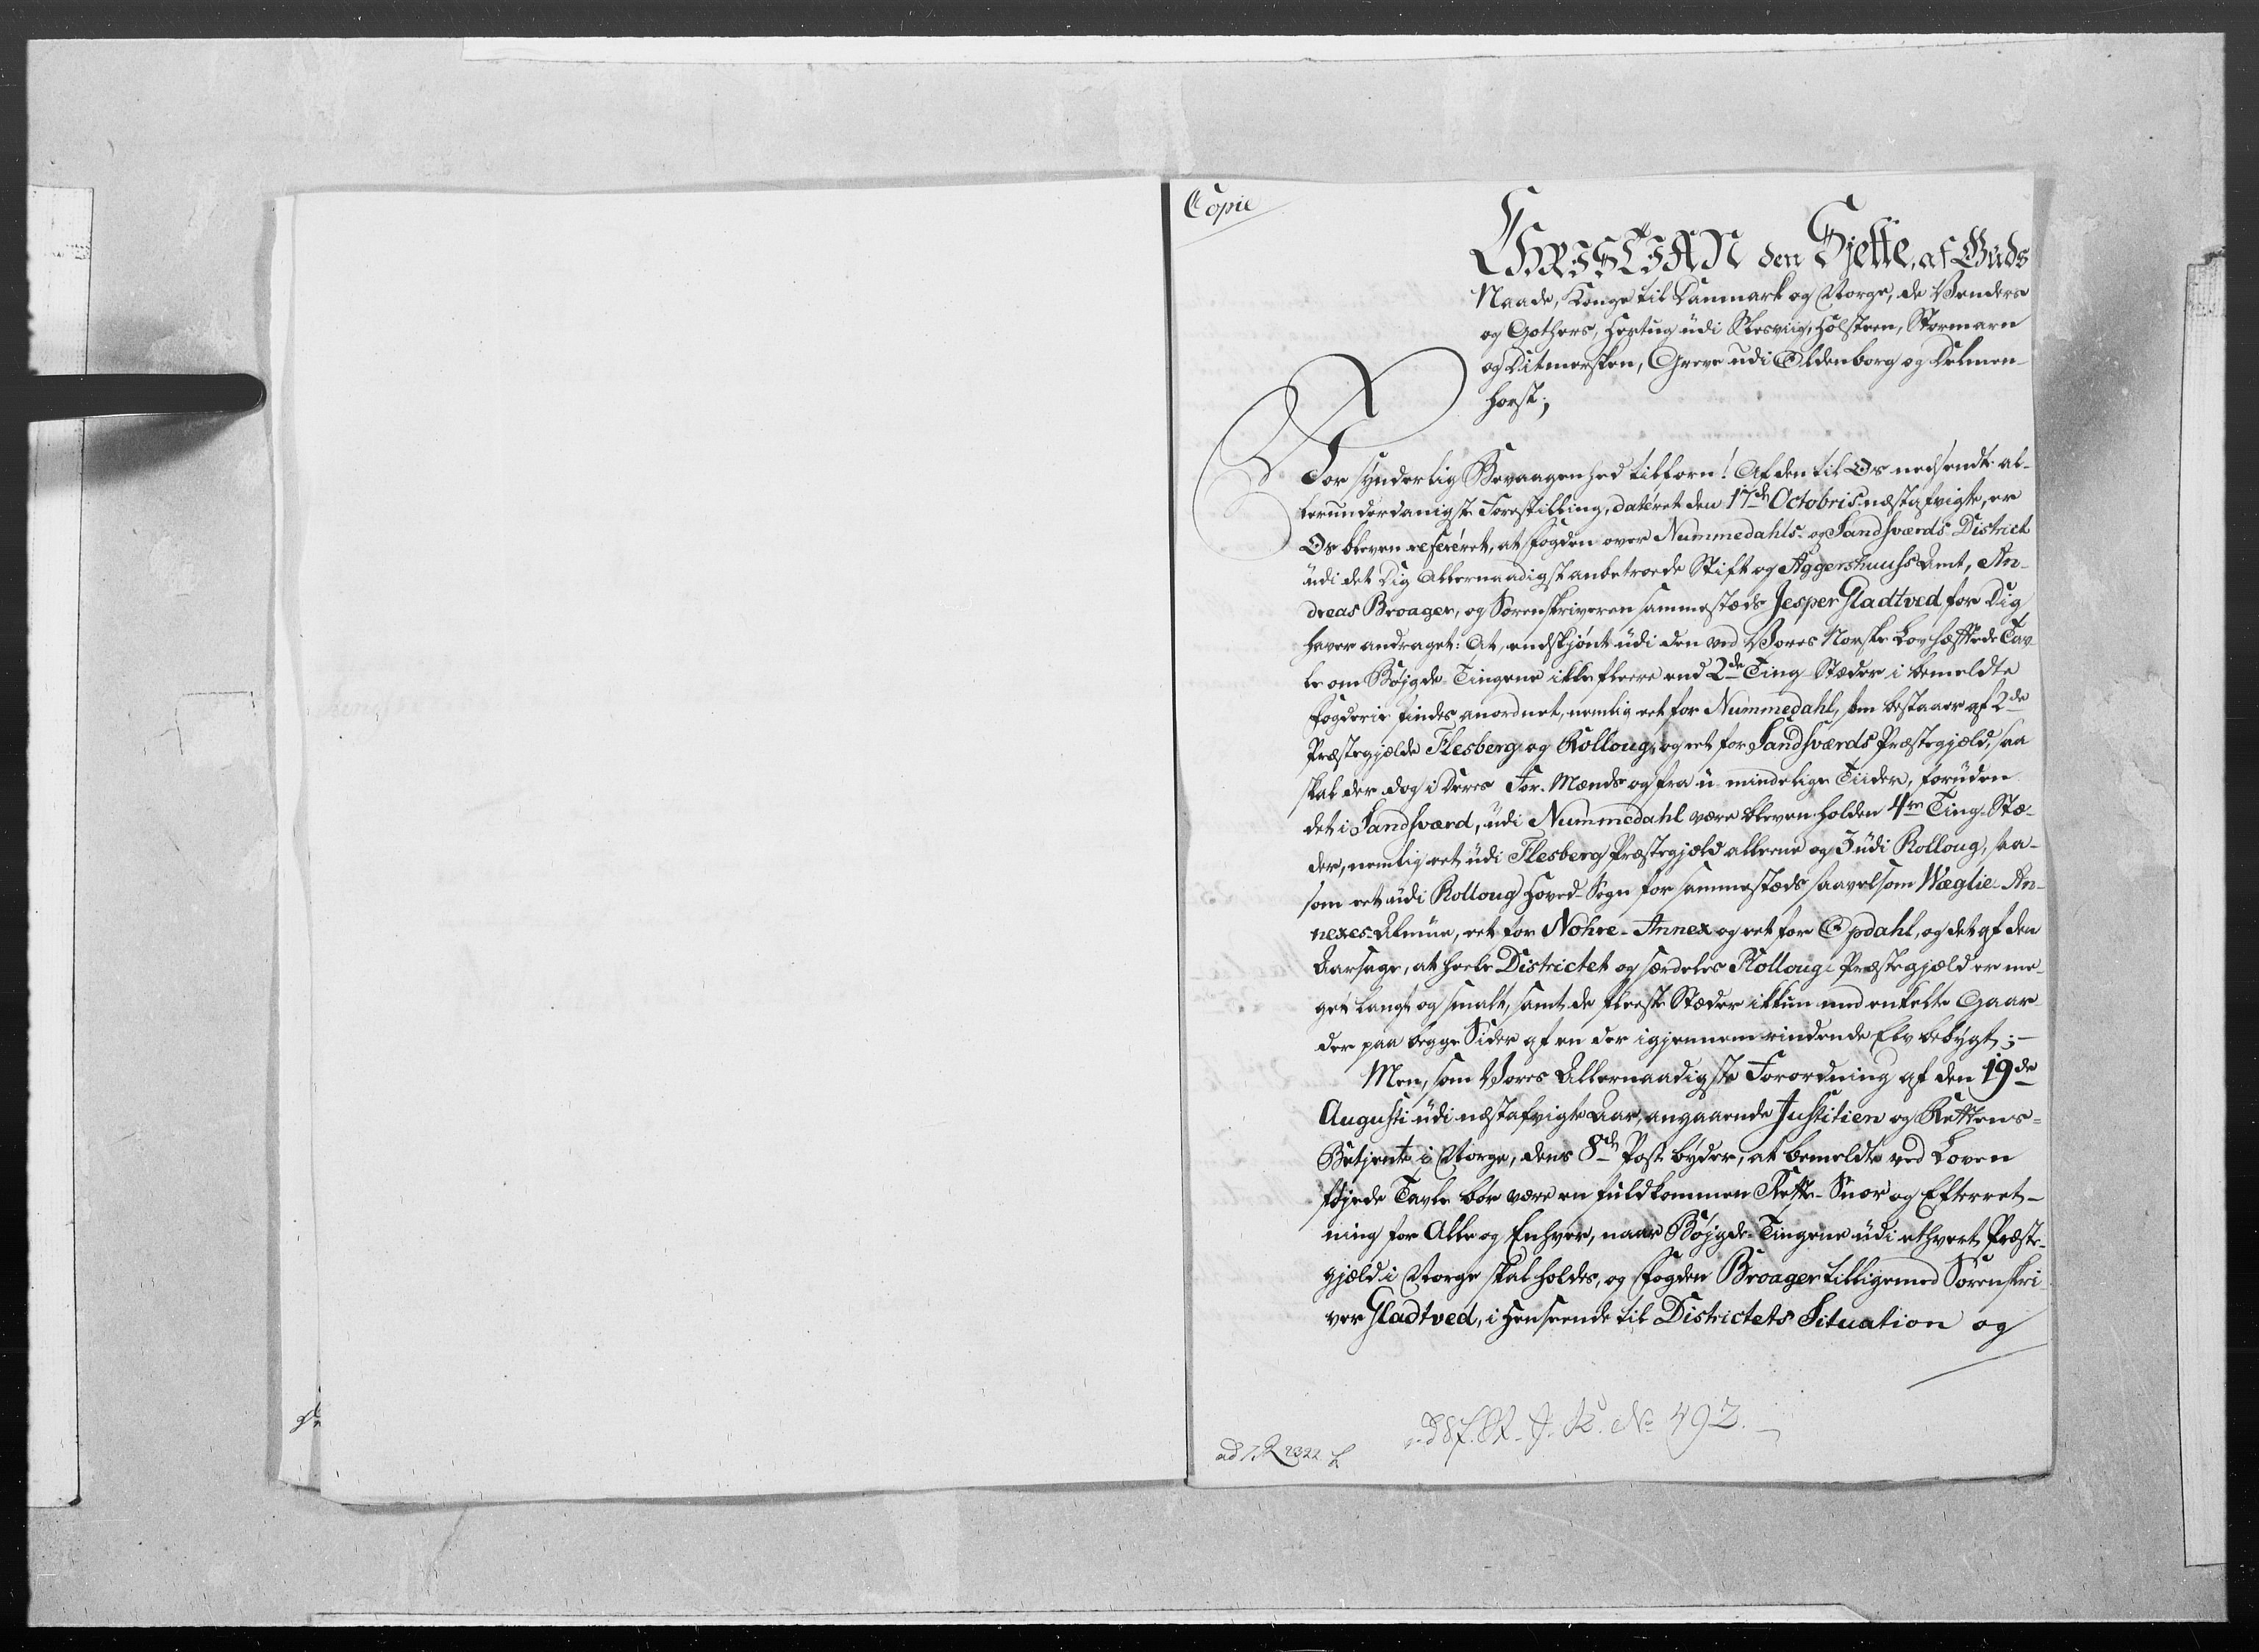 Copie
CHRISTIAN den Sjette, af Guds
Naade, Konge til Danmark og Norge, de Venders
og Gothers, Hertug udi Slesviig, Holsteen, Stormarn
og Ditmersken, Greve udi Oldenborg og Delmen-
horst;
Vor synderlig Bevaagenhed tilforn! Af den til Os nedsendte al-
lerunderdanigste Forestilling, dateret den 17de Octobris næstafvigte, er
Os bleven refereret, at Fogden over Nummedahls- og Sandsværds District
udi det Dig Allernaadigst anbetroede Stift og Aggershuuss Amt, An-
dreas Broager, og Sorenskriveren sammestæds Jesper Gladtved for Dig
haver andraget: At, endskjønt udi den ved Vores Norske Lov hæftede Tav-
le om Bøjgde-Tingene ikke fleere end 2de Ting-Stæder i bemeldte
Fogderie findes anordnet, nemlig eet for Nummedahl, som bestaaer af 2de
Præstegjælde Flesberg og Rolloug, og eet for Sandsværds Præstegjæld, saa
skal der dog i Deres For-Mænds og fra u-mindelige Tiider, foruden
det i Sandsværd, udi Nummedahl være bleven holden 4re Ting-Stæ-
der, nemlig eet udi Flesberg Præstegjæld alleene og 3 udi Rolloug, saa-
som eet udi Rolloug Hoved-Sogn for sammestæds saavelsom Wæglie-An-
nexes-Almue, eet for Nohre-Annex og eet for Opdahl, og det af den
Aarsage, at heele Districtet og særdeles Rolloug-Præstegjæld er me-
get langt og smalt, samt de fleeste Stæder ikkun med enkelte Gaar-
der paa begge Sider af en der igjennem rindende Elv bebygt;-
Men, som Vores Allernaadigste Forordning af den 19de
Augusti udi næstafvigte Aar, angaaende Justitien og Rettens-
Betjente i Norge, dens 8de Post byder, at bemeldte ved Loven
føjede Tavle bør være en fuldkommen Rette-Snor og Efterret-
ning for Alle og Enhver, naar Bøjgde-Tingene udi ethvert Præste-
gjæld i Norge skal holdes, og Fogden Broager tilligemed Sorenskri-
ver Gladtved, i Henseende til Districtets Situation og
No 492.
ad 2322